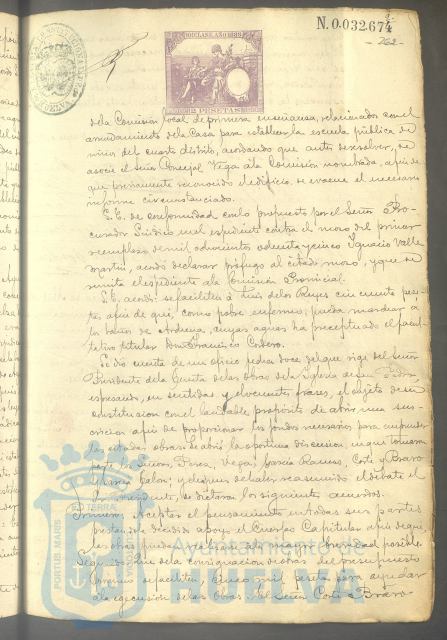 N. 0.032.674
262
10ª CLASE. AÑO 1889
2 PESETAS
de la Comisión local de primera enseñanza, relacionados con el
arrendamiento de la Casa para establecer la escuela pública de
niños del cuarto distrito, acordando que antes de resolver, se
asocie el Señor Concejal Vega á la Comisión nombrada, a fin de
que previamente reconocido el edificio, se evacue el necesario
informe circunstanciado.
S.E. de conformidad con lo propuesto por el Señor Pro-
curador Síndico en el espediente contra el mozo del primer
reemplazo de mil ochocientos ochenta y cinco Ignacio Valle
Martín, acordó declarar prófugo al citado mozo, y que se
remita el espediente a la Comisión Provincial.
S.E. acordó se faciliten á Luis de los Reyes cincuenta pese-
tas a fin de que, como pobre enfermo, pueda marchar á
los baños de cuyas aguas ha preceptuado el facul-
tativo titular Don Francisco Cordero.
Se dió cuenta de un oficio fecha doce del que rige del Señor
Presidente de la Junta de las obras de la Iglesia de San Pedro
espresando, en sentidas y elocuentes frases, el objeto de su
constitucion con el laudable propósito de abrir una sus-
cricion a fin de proporcionar los fondos necesarios para emprender
las citadas obras. Se abrió la oportuna discusion en que tomaron
parte los Señores Perez, Vega, García Ramos, Corte y Bravo
y García Galan; y despues de haber reasumido el debate el
Señor Presidente, se dictaron los siguientes acuerdos.
Primero: Aceptar el pensamiento en todas sus partes
prestando decidido apoyo el Cuerpo Capitular a fin de que
las obras puedan realizarse con la mayor brevedad posible
Segundo: que de la consignacion de obras del presupuesto
se faciliten, cinco mil pesetas para ayudar
á la ejecucion de las obras. El Señor Corte y Bravo
PORTUS MARIS
TERRÆ
Ayuntamiento de
HUELVA